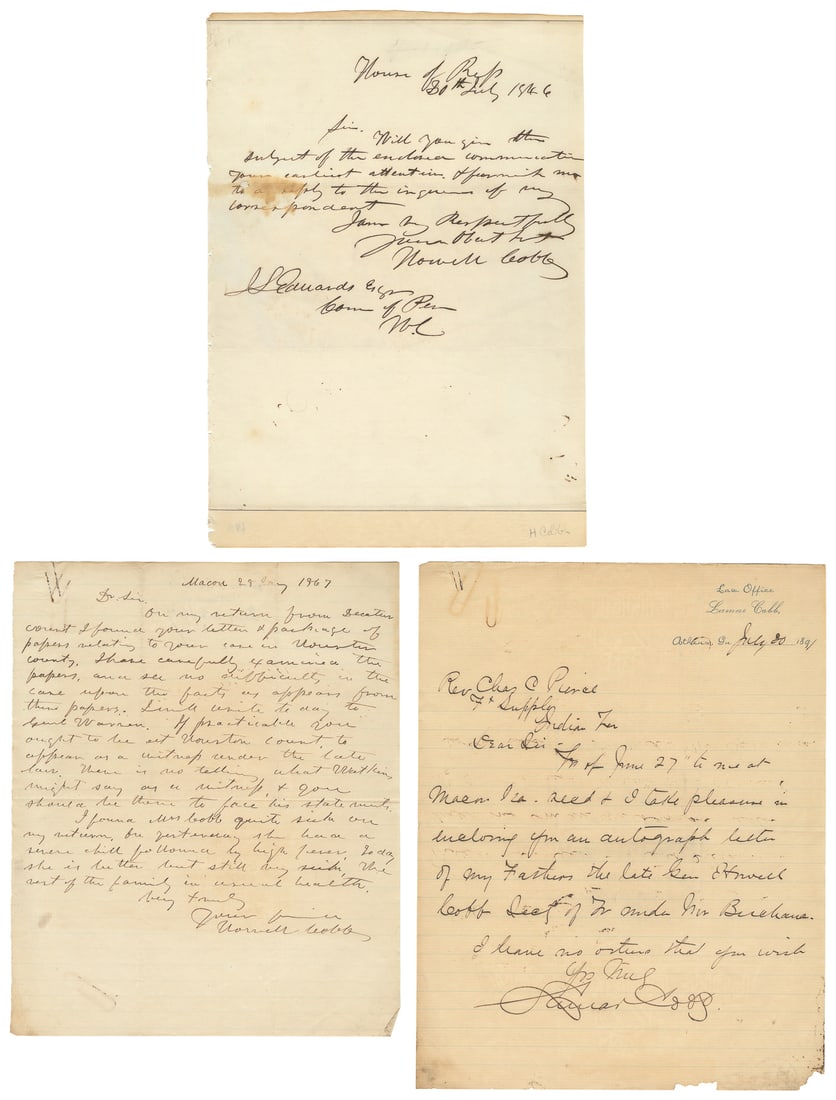 House of Reps
30th July 1846
Sir.
Will you give the
subject of the enclosed communication
your earliest attention & furnish me
to a reply to the inquiries of my
correspondent
I am very Respectfully
Your Obt Svt
Howell Cobb
J L Edwards Esqr
Com of Pen
W.C
H Cobb
Macon 29 1867
Dr Sir.
On my return from Decatur
court I found your letter & package of
papers relating to your case in Houston
county. I have carefully examined the
papers, and see no difficulty in the
case upon the facts as appears from
these papers. I will write to day to
Genl Warren. If practicable you
ought to be at Houston court, to
appear as a witness under the late
law. There is no telling what Watkins
might say as a witness, & you
should be there to face his statements.
I found Mrs Cobb quite sick on
my return, On yesterday she had a
severe chill followed by high fever. To day
she is better but still very sick, The
rest of the family in usual health.
Very truly
Yours
Howell Cobb
Law Office
Lamar Cobb.
Athens, Ga. July 30 1891
Rev. Chas C Pierce
Ft Supply
Indian Ter
Dear Sir
Yr of June 27" to me at
Macon Ga. recd & I take pleasure in
enclosing you an autograph letter
of my Fathers the late Gen Howell
Cobb Secty of Tr under Mr Buchanan.
I have no others that you wish
Yrs Truly
Lamar Cobb.